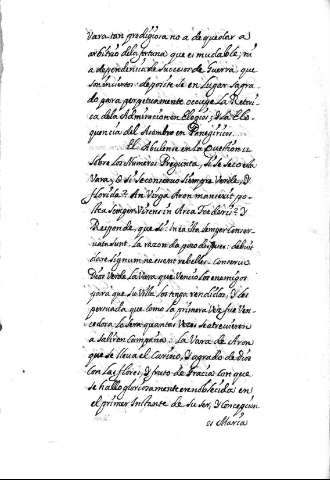 Vara tan prodigiosa no a de quedar a
arbitrio dela fortuna que es mudable, ni
a dependencia de sucesos de Guerra, que
son inciertos: deposite se en lugar sagra
do para perpetuamente ocupe la Retori
ca dela Admiracion en Elogios, y dela Elo
quencia del Asombro en Panegiricos.
El Abulense en la Question 12
sobre los Numeros Pregunta, si se seco esta
Vara, o si se conservo siempre Verde, y
florida: An Virga Aron manserit po
stea semper Virens in Arca Foederis: y
Responde, que si: In ea ista semper conser
vata sunt. La razon da poco despues: debuis
se signum ne essent rebelles. Conserve
Dios Verde la Vara, que Vencio los enemigos
para que su Vista los tenga rendidos, y les
persuada que como la primera Vez fue Ven
cedora lo sera quantas Vezes se atrevieren
a salir en Campaña. La Vara de Aron
que se lleva el Cariño, y agrado de Dios
con las flores, y fruto de Gracia con que
se hallo gloriosamente ennoblecida en
el primer Instante de su ser, y Concepcion
es Maria